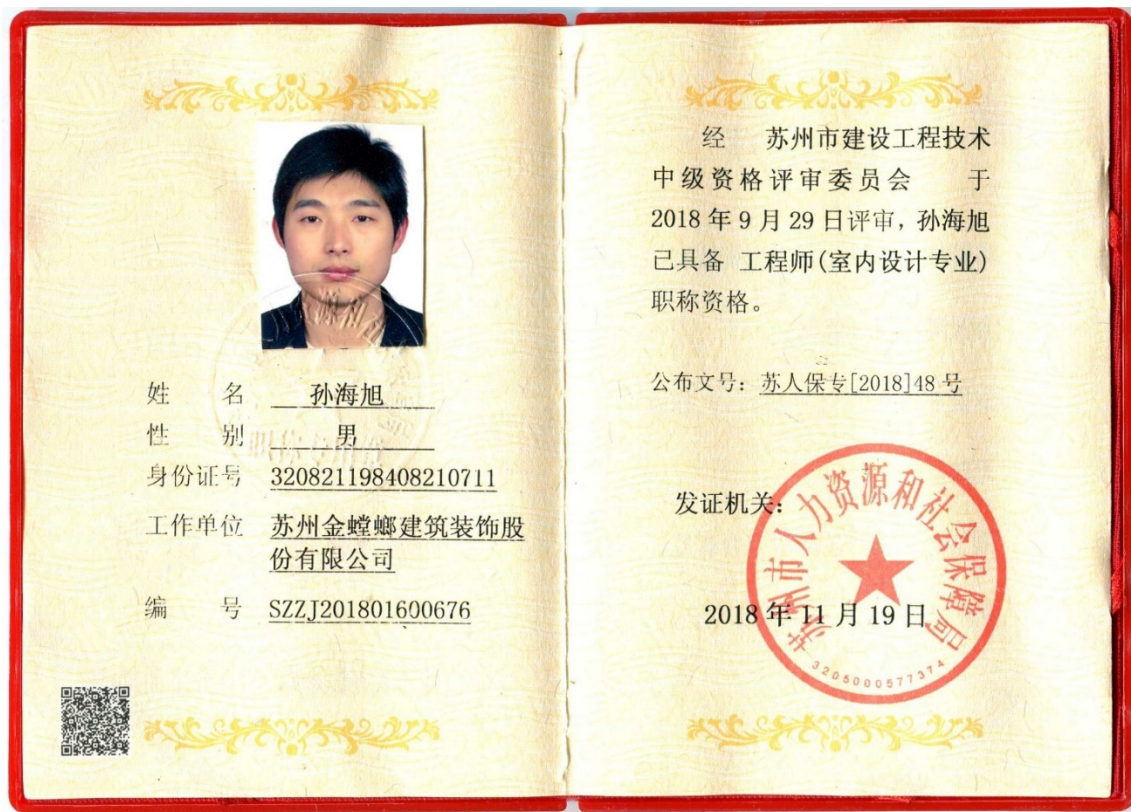 姓 名 孙海旭
性 别 男
身份证号 320821198408210711
工作单位 苏州金螳螂建筑装饰股
份有限公司
编 号 SZZJ201801600676
经 苏州市建设工程技术
中级资格评审委员会 于
2018年9月29日评审，孙海旭
已具备 工程师(室内设计专业)
职称资格。
公布文号：苏人保专[2018]48号
发证机关：
苏州市人力资源和社会保障局
2018年11月19日
3205000577374